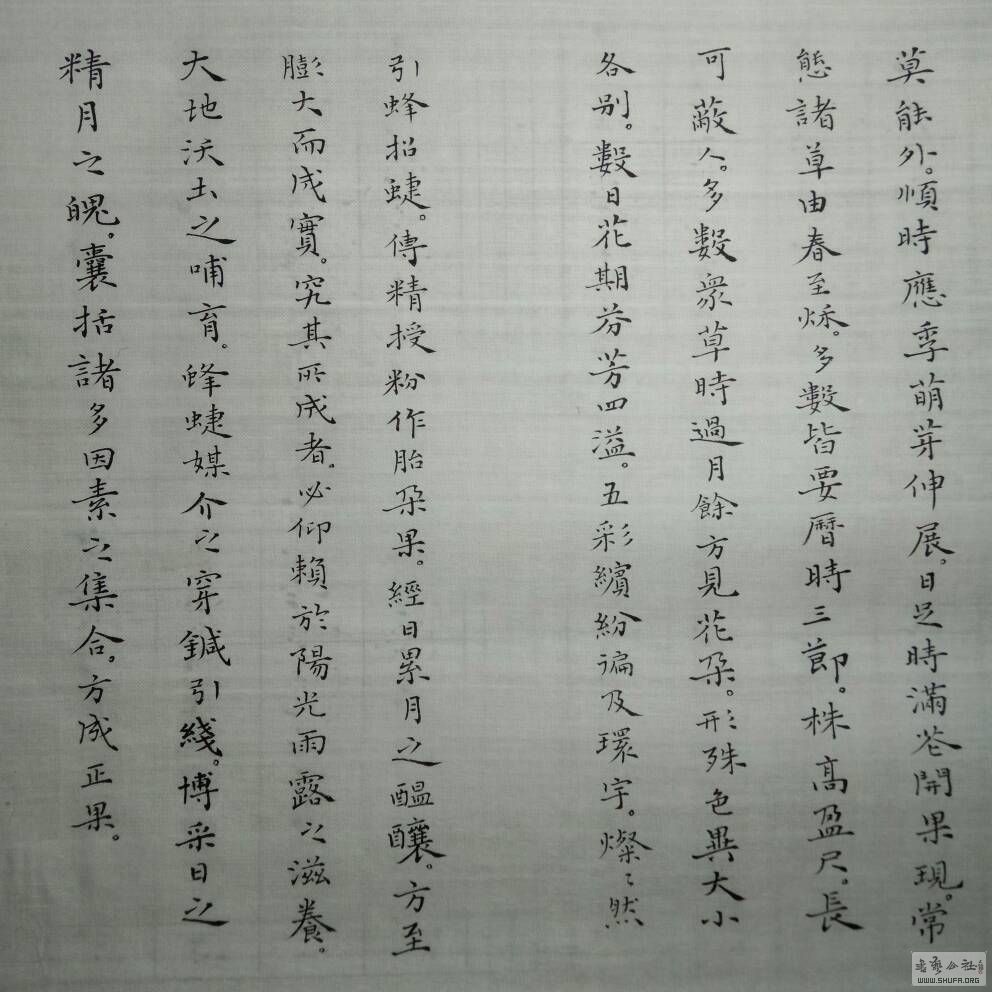 莫能外。順時應季萌芽伸展。日足時滿苍開果現。常
態諸草由春至烁。多數皆要曆時三節。株高盈尺。長
可蔽人。多數衆草時過月餘方見花朶。形殊色異大小
各别。數日花期芬芳四溢。五彩繽紛遍及環宇。燦〻然
引蜂招蜨。傳精授粉作胎朶果。經日累月之醖釀。方至
膨大而成實。究其所成者。必仰賴於陽光雨露之滋養。
大地沃土之哺育。蜂蜨媒介之穿鍼引綫。博采日之
精月之魄。囊括諸多因素之集合。方成正果。
WWW.SHUFA.ORG